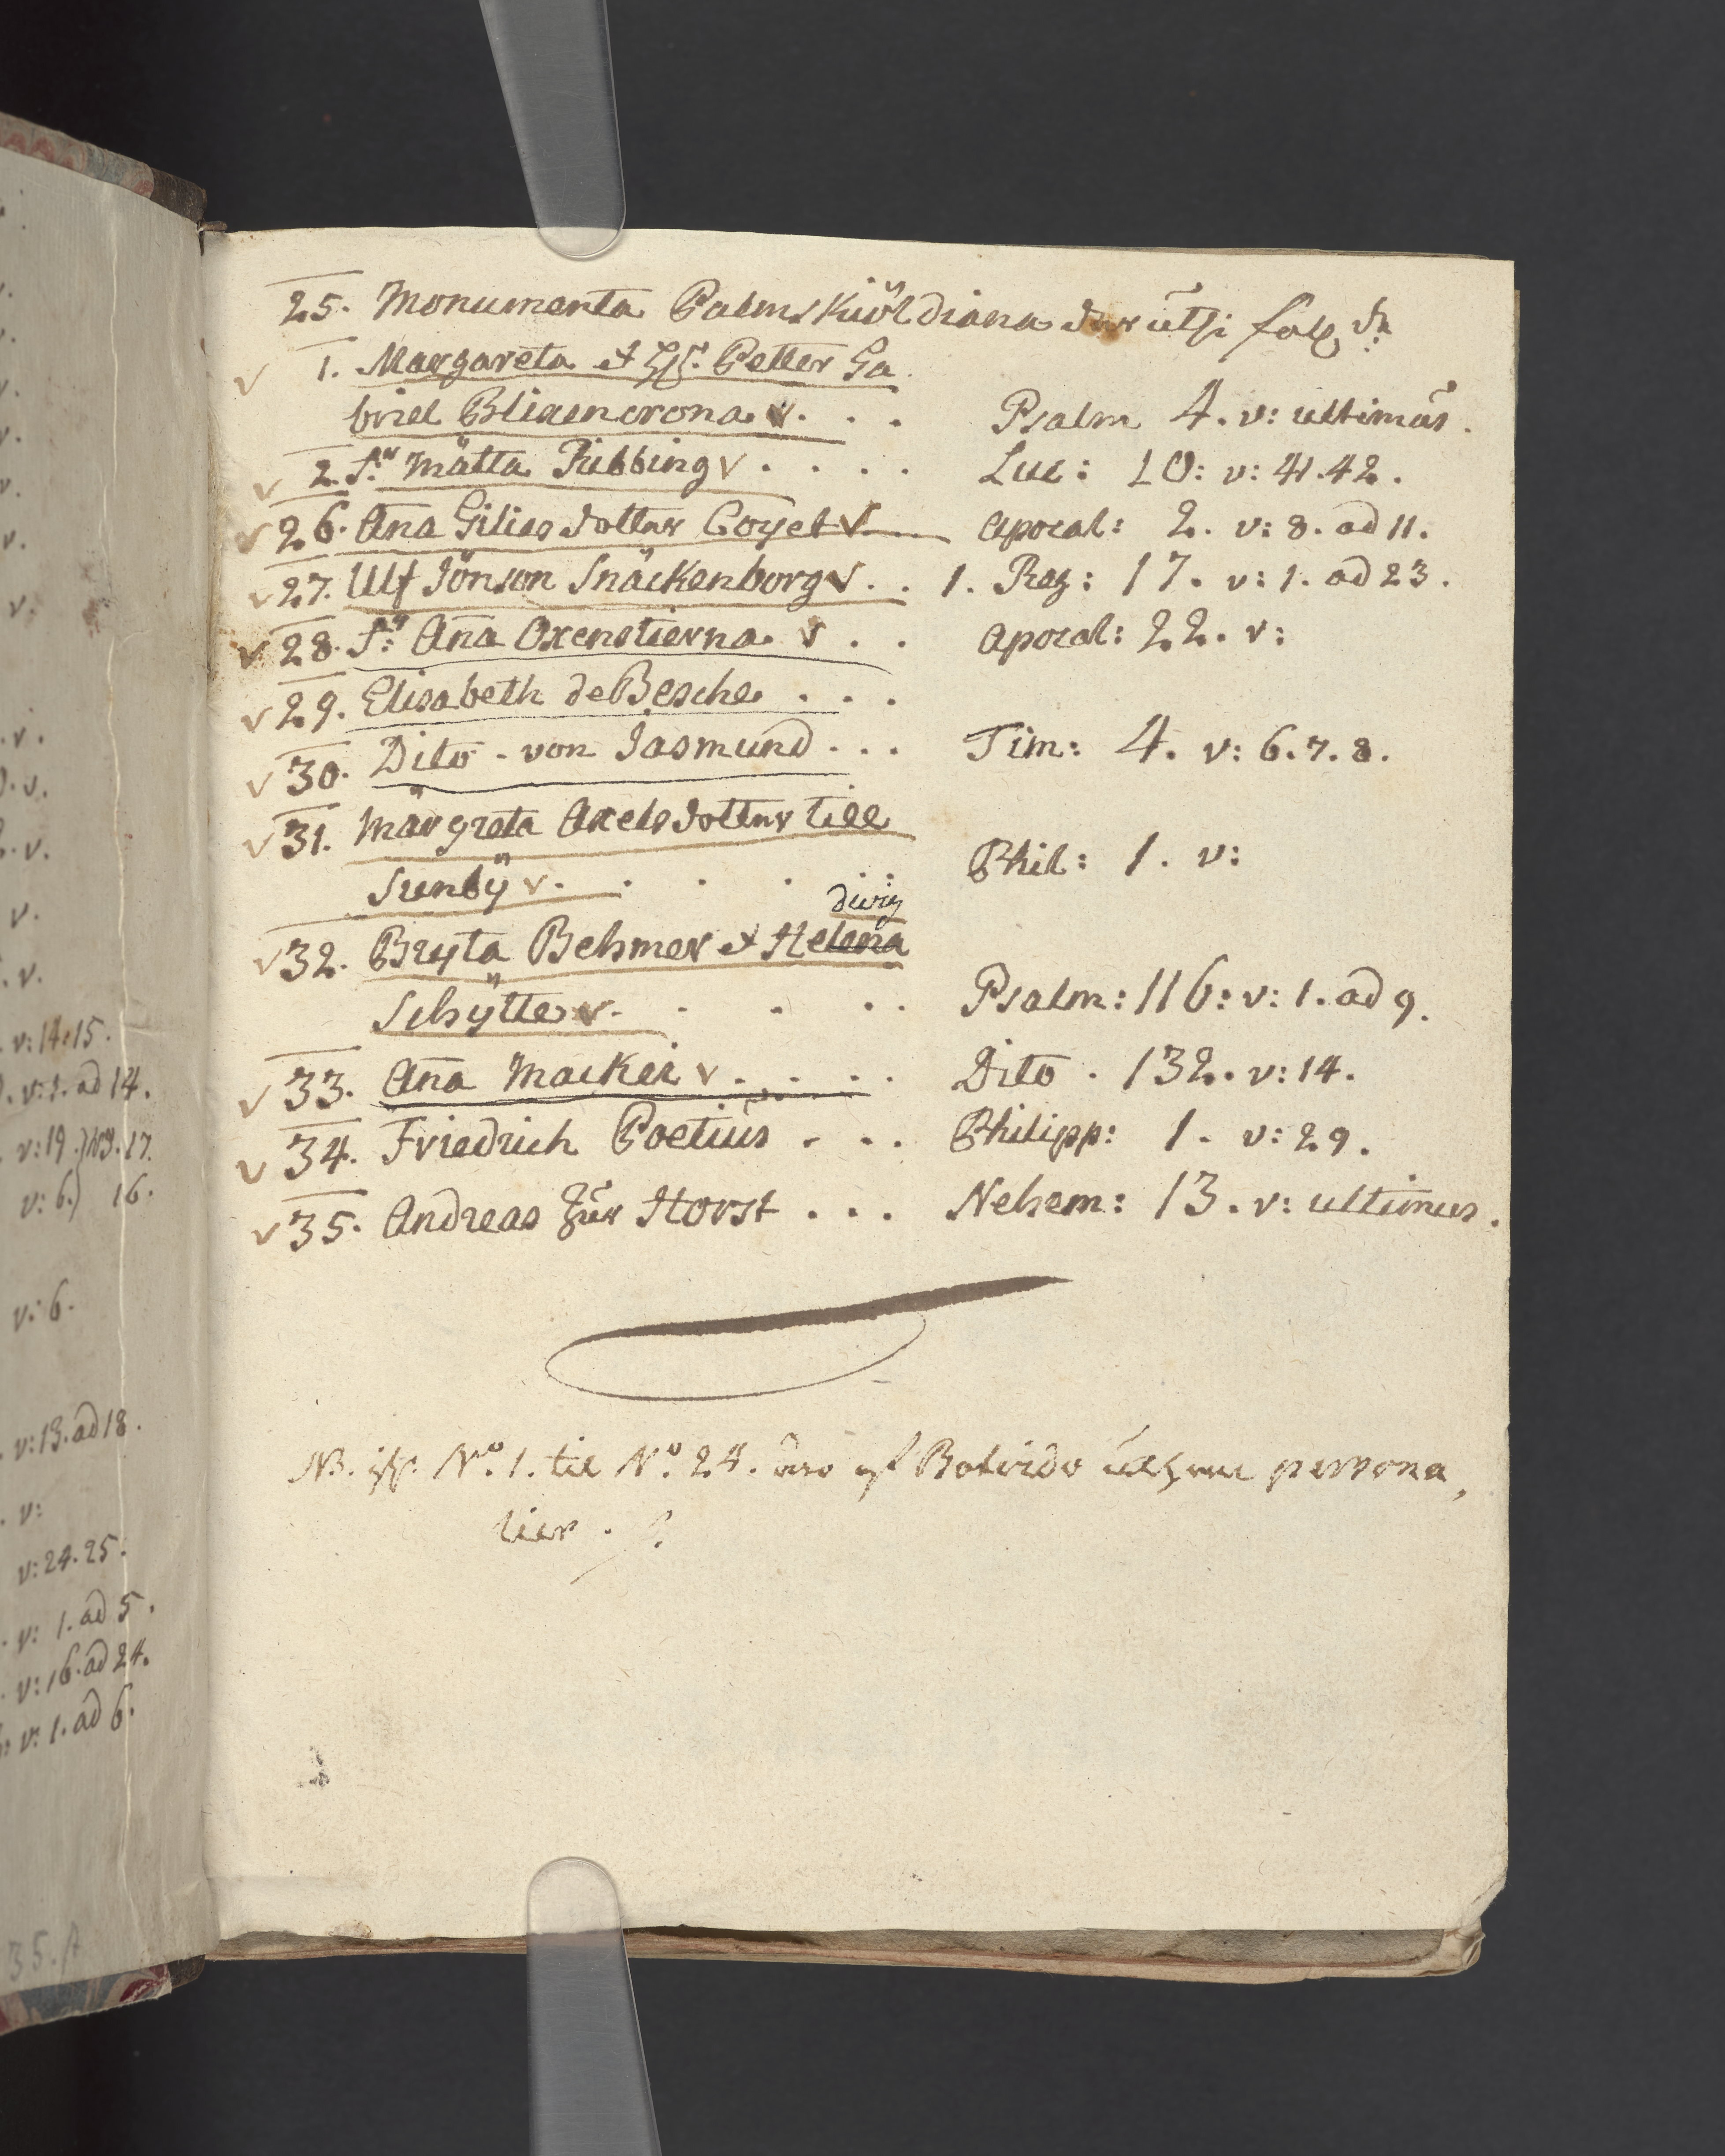 25. Monumenta Palmskiöldiana
1. Margareta et Petter Ga
briel Blixencrona v. . . Psalm 4. v: ultimus.
2. Fru Mätta Ribbing v . . . . Luc: 10: v: 41.42.
26. Aña Gilias dotter Coyet v Apocal: 2. v: 8. ad 11.
27. Ulf Jönson Snäckenborg v . . 1. Reg: 17. v: 1. ad 23.
28. Fru Aña Oxenstierna v . . Apocal: 22. v:
29. Elisabeth de Besche . . .
30. Dito - von Jasmund . . . Tim: 4. v: 6.7.8.
31. Margreta Axelsdotter till
Sunbÿ v. . . . Phil: 1. v:
divig
32. Bryta Behmer et Helena
Schÿtte v. . . . . Psalm: 116: v: 1. ad 9.
33. Aña Mackei v . . . . Dito . 132. v: 14.
34. Friedrich Poetius . . . Philipp: 1. v: 29.
35. Andreas Zur Horst . . . Nehem: 13. v: ultimus.
NB. N.o 1. til N.o 24. äro af Botvido persona
lier.
v: 14.15.
v: 1. ad 14.
v: 19. 17.
v: 6.) 16.
v: 6.
v: 13. ad 18.
v:
v: 24.25.
v: 1. ad 5.
v: 16. ad 24.
v: 1. ad 6.